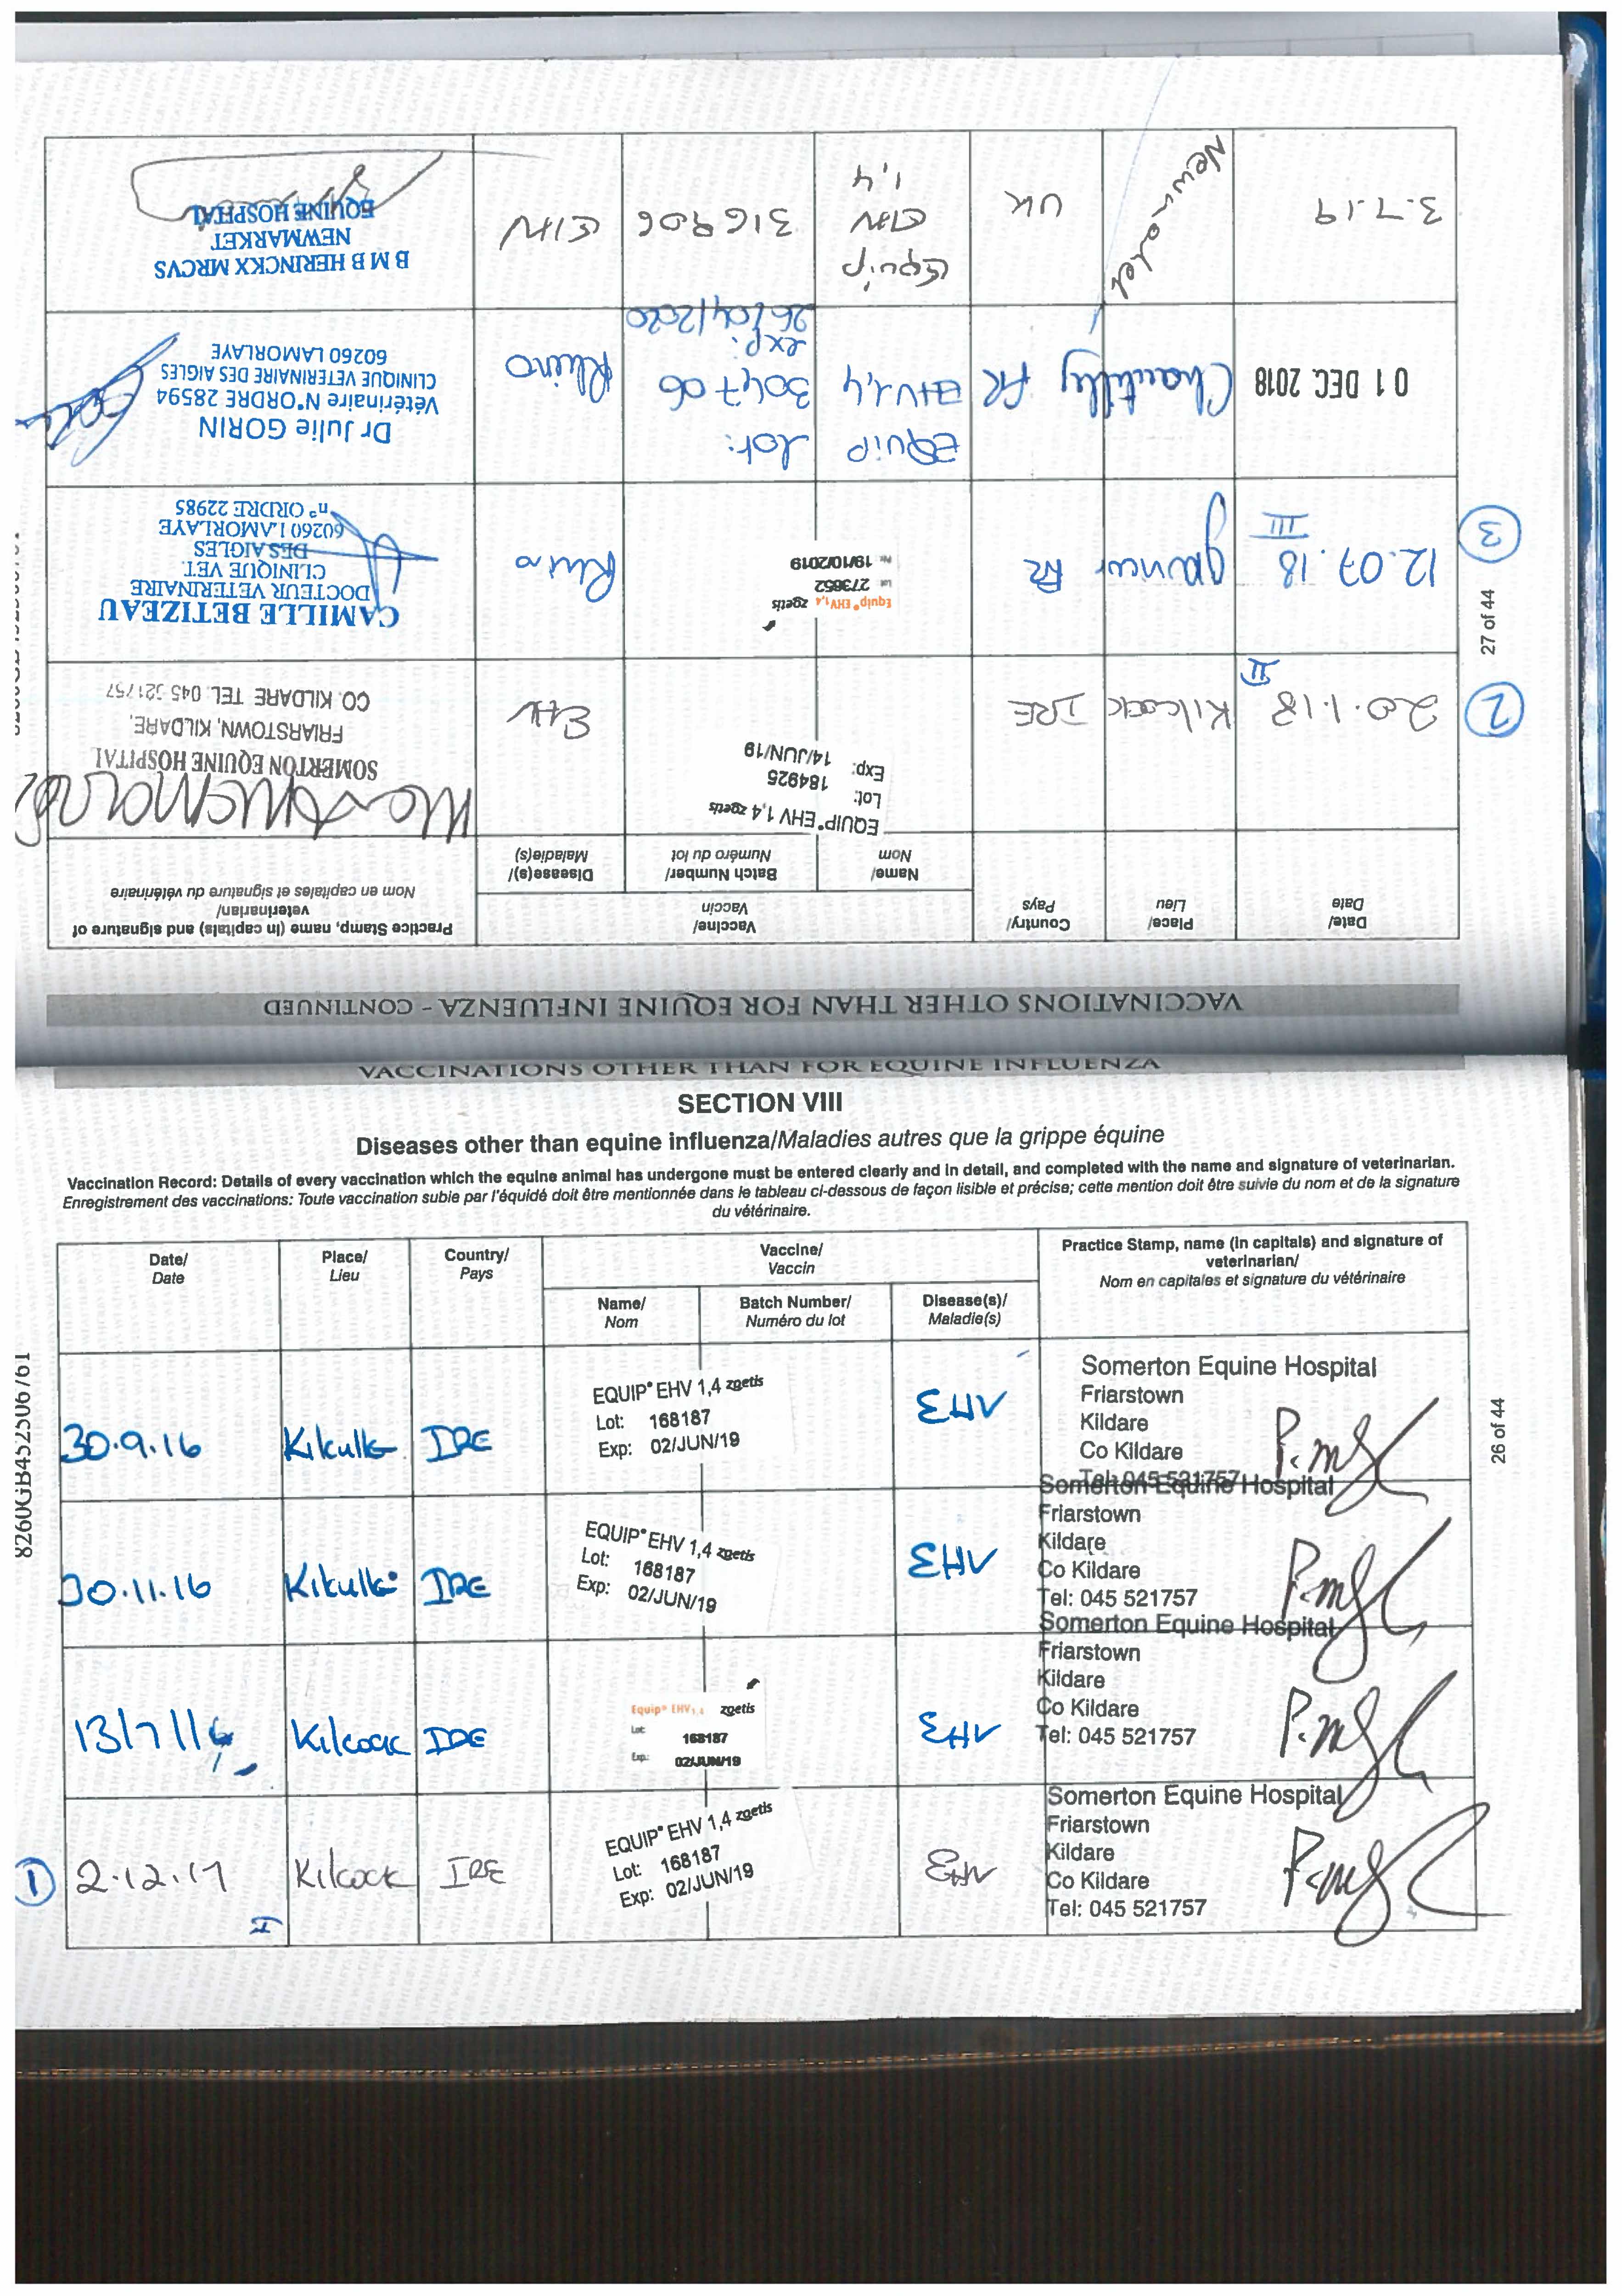 VACCINATIONS OTHER THAN FOR EQUINE INFLUENZA
SECTION VIII
Diseases other than equine influenza/Maladies autres que la grippe équine
Vaccination Record: Details of every vaccination which the equine animal has undergone must be entered clearly and in detail, and completed with the name and signature of veterinarian.
Enregistrement des vaccinations: Toute vaccination subie par l'équidé doit être mentionnée dans le tableau ci-dessous de façon lisible et précise; cette mention doit être suivie du nom et de la signature
du vétérinaire.
Date/
Date
Place/
Lieu
Country/
Pays
Vaccine/
Vaccin
Name/
Nom
Batch Number/
Numéro du lot
Disease(s)/
Maladie(s)
Practice Stamp, name (in capitals) and signature of
veterinarian/
Nom en capitales et signature du vétérinaire
30.9.16
Kilculle
IRE
EQUIP EHV 1,4 zoetis
Lot: 168187
Exp: 02/JUN/19
EHV
Somerton Equine Hospital
Friarstown
Kildare
Co Kildare
Tel: 045 521757
30.11.16
Kilculle
IRE
EQUIP EHV 1,4 zoetis
Lot: 168187
Exp: 02/JUN/19
EHV
Somerton Equine Hospital
Friarstown
Kildare
Co Kildare
Tel: 045 521757
13/7/16
Kilcock
IRE
Equip EHV1,4 zoetis
Lot: 168187
Exp.: 02/JUN/19
EHV
Somerton Equine Hospital
Friarstown
Kildare
Co Kildare
Tel: 045 521757
1
2.12.17
I
Kilcock
IRE
EQUIP EHV 1,4 zoetis
Lot: 168187
Exp: 02/JUN/19
EHV
Somerton Equine Hospital
Friarstown
Kildare
Co Kildare
Tel: 045 521757
26 of 44
VACCINATIONS OTHER THAN FOR EQUINE INFLUENZA - CONTINUED
Date/
Date
Place/
Lieu
Country/
Pays
Vaccine/
Vaccin
Name/
Nom
Batch Number/
Numéro du lot
Disease(s)/
Maladie(s)
Practice Stamp, name (in capitals) and signature of
veterinarian/
Nom en capitales et signature du vétérinaire
2
20.1.18
II
Kilcock
IRE
EQUIP EHV 1,4 zoetis
Lot: 184925
Exp: 14/JUN/19
EHV
SOMERTON EQUINE HOSPITAL
FRIARSTOWN, KILDARE,
CO. KILDARE TEL. 045-521757
3
12.07.18
III
FR
Equip EHV1,4 zoetis
Lot 273652
19/10/2019
Rhino
CAMILLE BETIZEAU
DOCTEUR VETERINAIRE
CLINIQUE VET.
DES AIGLES
60260 LAMORLAYE
n° ORDRE 22985
01 DEC. 2018
Chantilly
FR
EQUIP
EHV1,4
lot:
304706
exp:
26/04/2020
Rhino
Dr Julie GORIN
Vétérinaire N°ORDRE 28594
CLINIQUE VETERINAIRE DES AIGLES
60260 LAMORLAYE
3.7.19
Newmarket
UK
Equip
EHV
1,4
316906
EHV
B M B HERINCKX MRCVS
NEWMARKET
EQUINE HOSPITAL
27 of 44